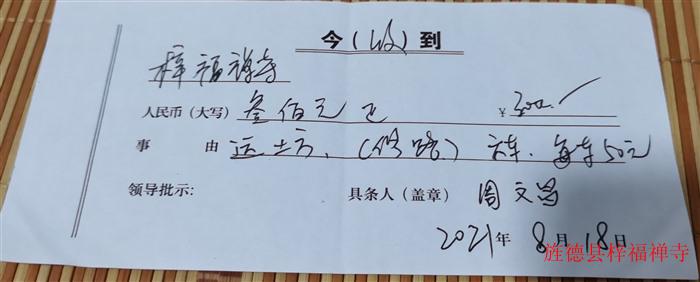 今(收)到
梓福禅寺
人民币(大写)叁佰元正 ¥300.
事 由 运土方、(修路)六车、每车50元
领导批示: 具条人(盖章) 周文昌
2021年8月18日
旌德县梓福禅寺